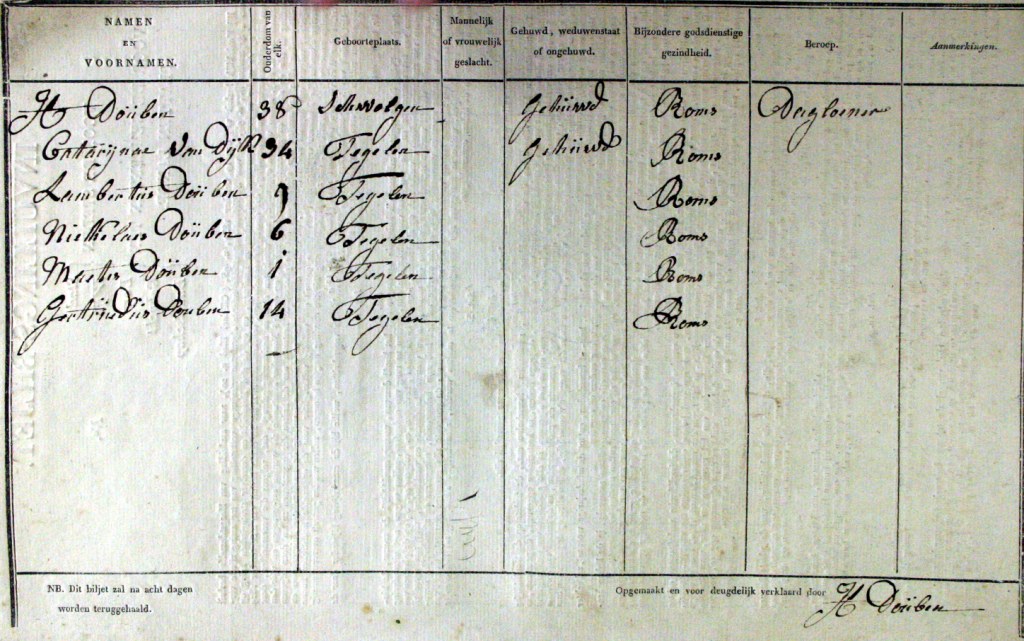 NAMEN EN VOORNAMEN. Ouderdom van elk. Geboorteplaats. Mannelijk of vrouwelijk geslacht. Gehuwd, weduwenstaat of ongehuwd. Bijzondere godsdienstige gezindheid. Beroep. Aanmerkingen.
H Doüben 38 Schwolgen Gehüwd Roms Dagloener
Catarijnae Van Dijk 34 Tegelen Gehüwd Roms
Lambertus Doüben 9 Tegelen Roms
Niekelaus Doüben 6 Tegelen Roms
Doüben 1 Tegelen Roms
Gertrüdüs Douben 14 Tegelen Roms
NB. Dit biljet zal na acht dagen
worden teruggehaald.
Opgemaakt en voor deugdelijk verklaard door H Doüben